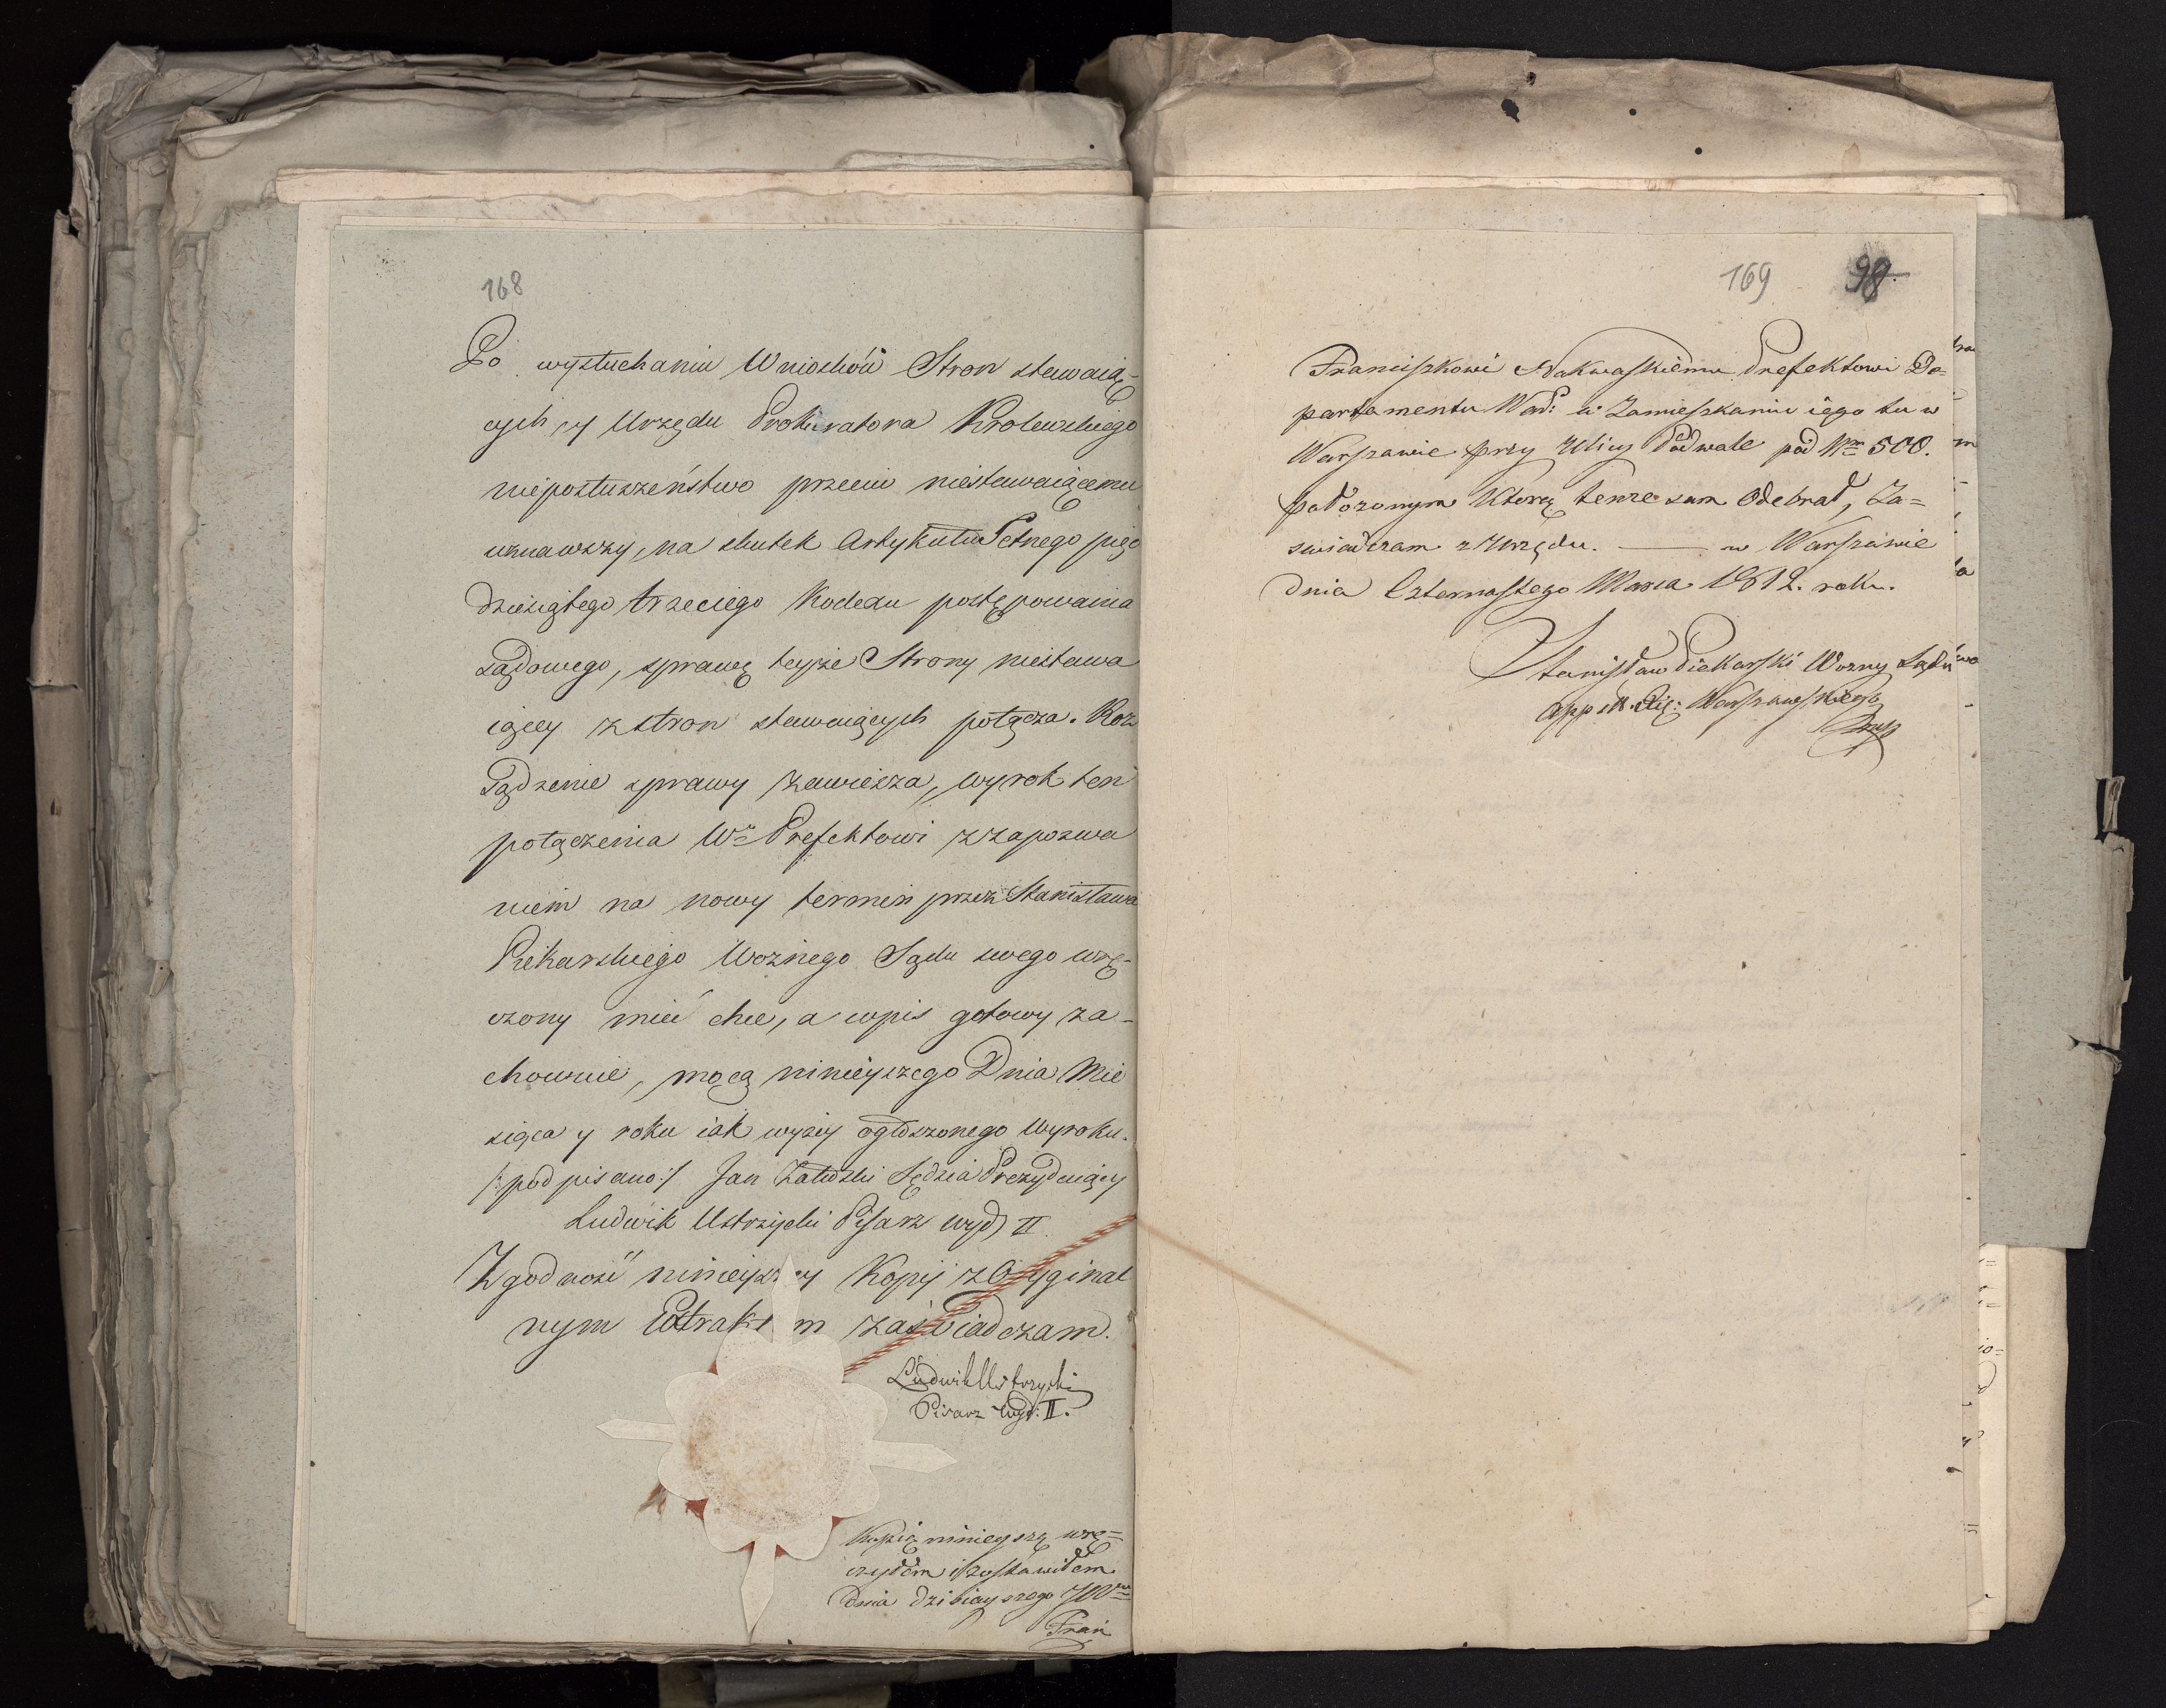 168
Po wysłuchaniu Wniosków Stron stawaią-
cych, y Urzędu Prokuratora Krolewskiego
nieposłuszeństwo przeciw niestawaiącemu
uznawszy, na skutek Artykułu Setnego pięć
dziesiątego trzeciego Kodexu postępowania
Sądowego, sprawę teyże Strony niestawa
iącey z stron stawaiących połącza. Roz
sądzenie sprawy zawiesza, wyrok ten
połączenia Wu Prefektowi z zapozwa
niem na nowy termin przez Stanisława
Piekarskiego Woznego Sądu swego wrę-
czony mieć chce, a wpis gotowy za-
chowuie, mocą ninieyszego Dnia Mie
siąca y roku iak wyżey ogłoszonego wyroku.
/:podpisano:/ Jan Załuski Sędzia Prezyduiący
Ludwik Ustrzycki Pisarz wyd II.
Zgodność ninieyszey Kopij z Oryginal
nym Extraktem zaświadczam.
Ludwik Ustrzycki
Pisarz Wyd: II.
Kopią ninieyszą wrę=
czyłem i zostawiłem
dnia dzisieyszego JWmu
Fran
169 98
Franciszkowi Nakwaskiemu Prefektowi De=
partamentu War: w Zamieszkaniu iego tu w
Warszawie przy Ulicy Podwale pod Nrm 500.
położonym Którą tenże sam Odebrał, Za=
swiadczam z Urzędu. — w Warszawie
dnia Czternastego Marca 1812. roku.
Stanisław Piekarski Wozny Sądu
App: Xię: Warszawskiego